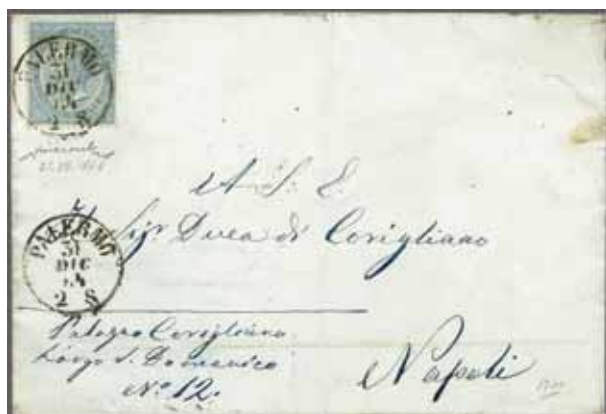 PALERMO
31
DIC
64
2 S
A S. E.
Il Sigr Duca di Corigliano
PALERMO
31
DIC
64
2 S
Palazzo Corigliano
Largo S. Domenico
No 12.
Napoli